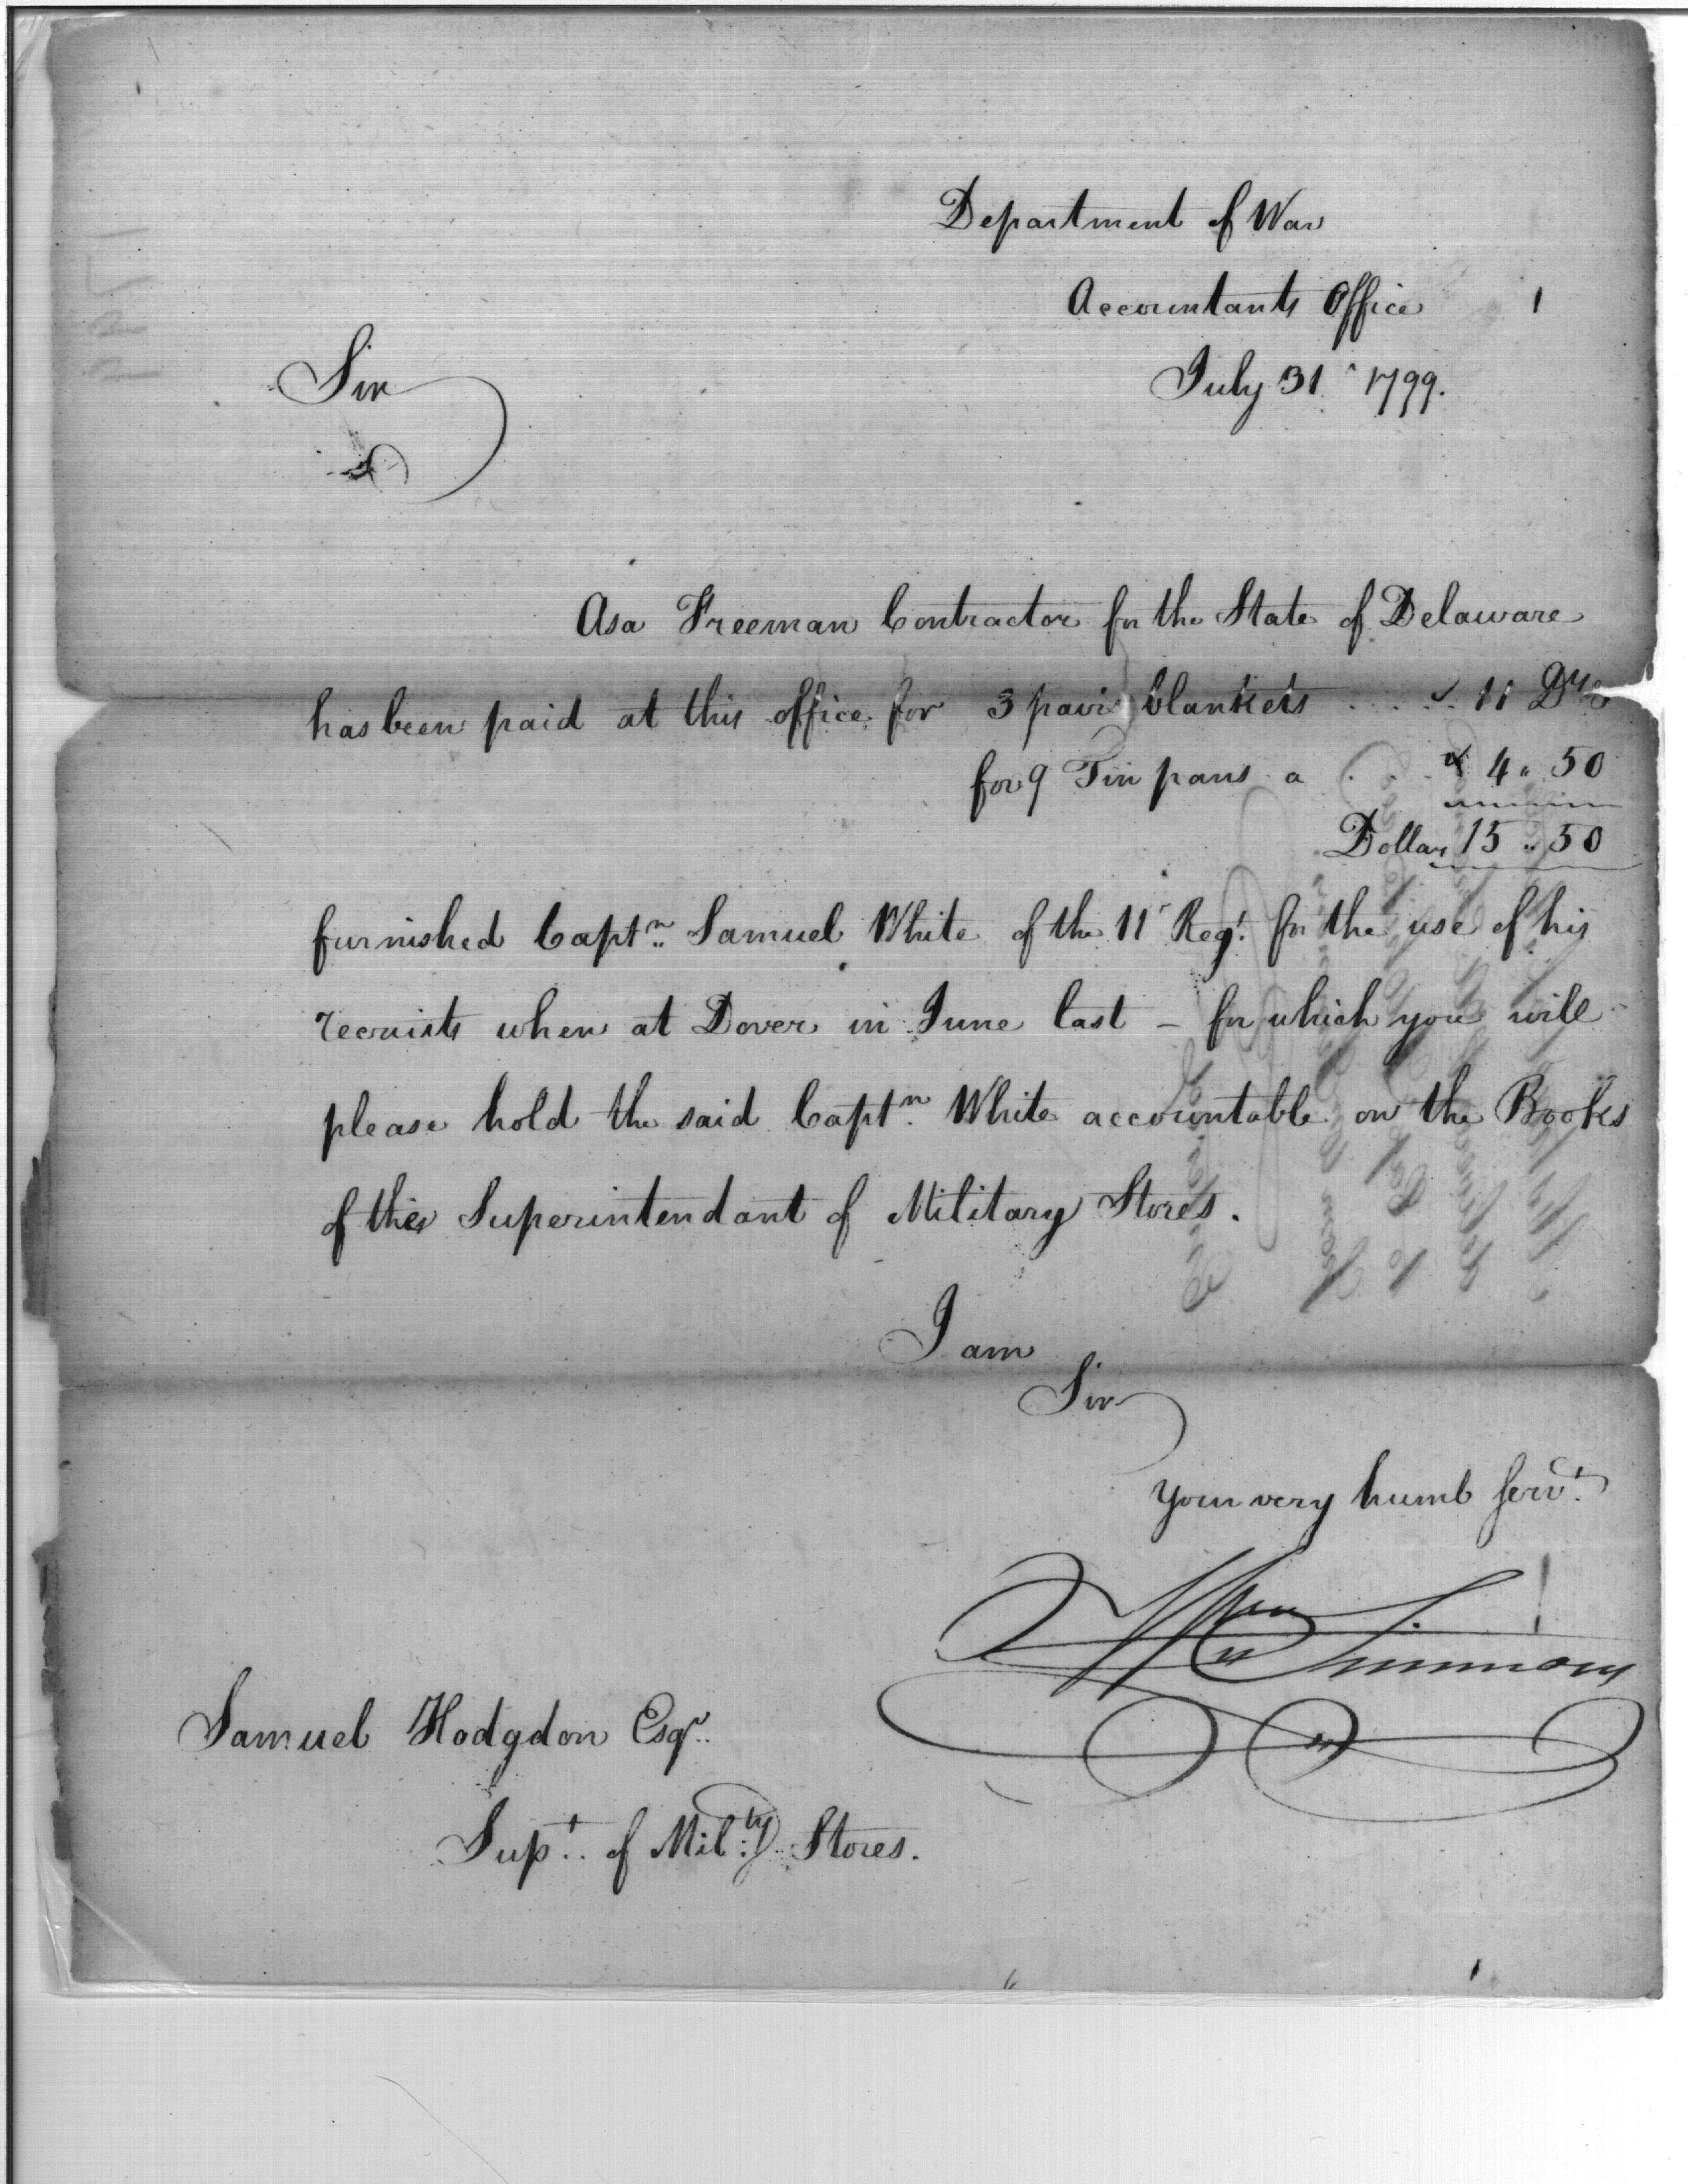 Department of War
Accountants Office
July 31 1799.
Sir
Asa Freeman Contractor for the State of Delaware
has been paid at this office for 3 pair blankets . . . . 11 Drs
for 9 Tin pans a . . . 4 " 50
Dollars 15 " 50
furnished Captn. Samuel White of the 11 Regt. for the use of his
recruits when at Dover in June last – for which you will
please hold the said Captn. White accountable on the Books
of the Superintendant of Military Stores.
I am
Sir
Your very humb Servt.
Wm Simmons
Samuel Hodgdon Esqr.
Supt. of Mil:ty Stores.